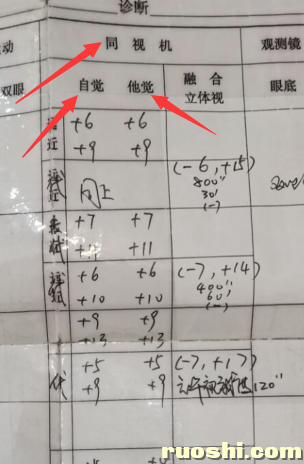 诊断
动 同视机 观测镜
双眼 自觉 他觉 融合 立体视 眼底
远 +6 +6
近 +9 +9
(-6, +15)
同上 800"
30'
(-)
+7 +7
+11
+6 +6 (-7, +14)
+10 +10 400"
60'
(-)
+9 +9
+13 +13
+5 +5 (-7, +17)
+9 +9 120"
ruoshi.com